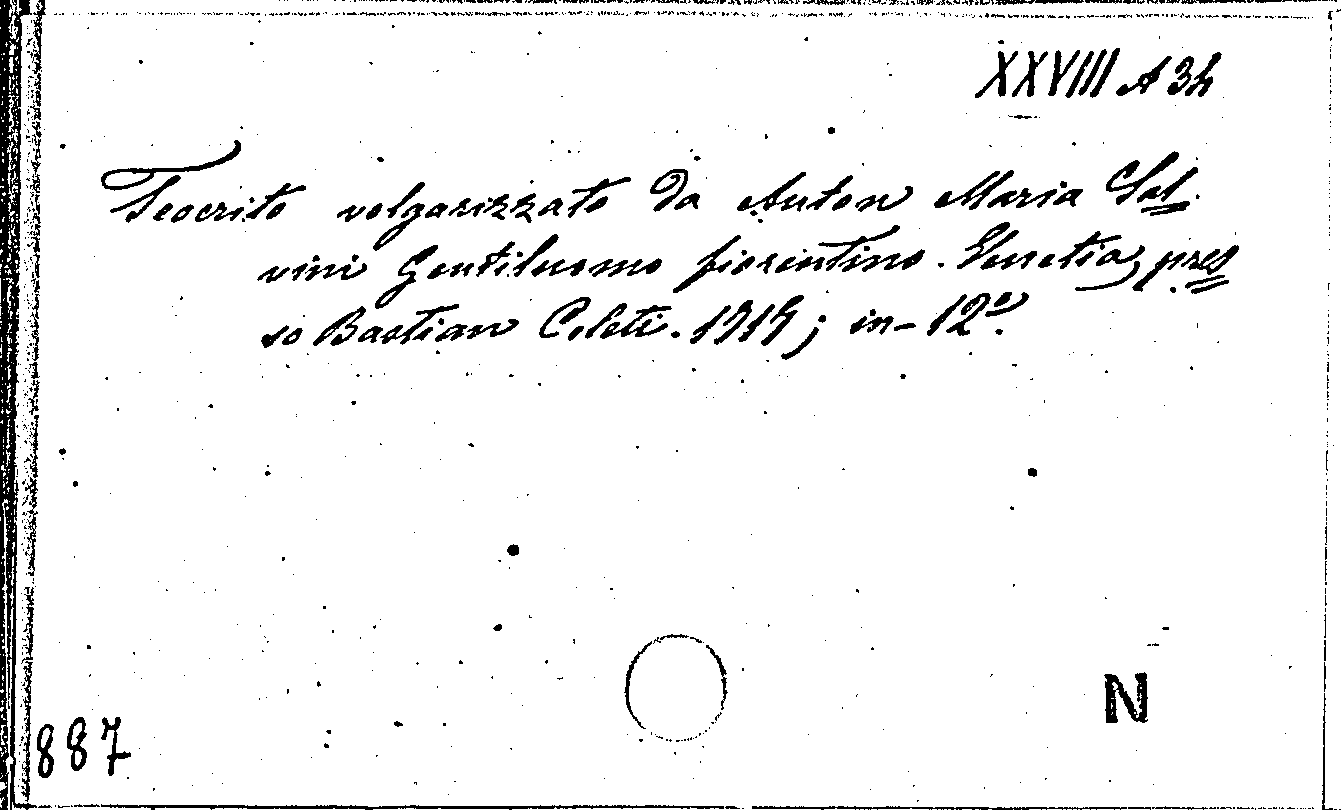 XXVIII A 34
Teocrito volgarizzato da Anton Maria Sal=
vini Gentiluomo fiorentino. Venetia, pres=
so Bastian Coleti. 1717; in-12º.
N
887